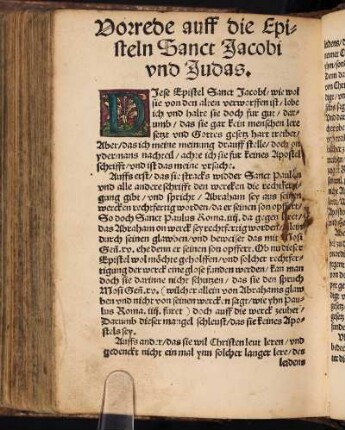 Vorrede auff die Epi-
steln Sanct Jacobi
vnd Judas.
DJese Epistel Sanct Jacobi/ wie wol
sie von den alten verworffen ist/ lobe
ich vnd halte sie doch fur gut/ dar-
umb/ das sie gar kein menschen lere
setzt vnd Gottes gesetz hart treibet/
Aber/ das ich meine meinung drauff stelle/ doch on
ydermans nachteil/ acht ich sie fur keines Apostel
schrifft/ vnd ist das meine vrsache.
Auffs erst/ das sie stracks widder Sanct Paulus
vnd alle andere schrifft den wercken die rechtferti-
gung gibt/ vnd spricht/ Abraham sey aus seinen
wercken rechtfertig worden/ da er seinen son opffert/
So doch Sanct Paulus Roma. iiij. da gegen leret/
das Abraham on werck sey rechtfertig worden/ allein
durch seinen glawben/ vnd beweiset das mit Mosi
Gen. xv. ehe denn er seinen son opffert. Ob nu dieser
Epistel wol möchte geholffen/ vnd solcher rechtfer-
tigung der werck eine glose funden werden/ kan man
doch sie darinne nicht schutzen/ das sie den spruch
Mosi Gen. xv. (wilcher allein von Abrahams glaw
ben vnd nicht von seinen wercken sagt/ wie yhn Pau
lus Roma. iiij. furet) doch auff die werck zeuhet/
Darumb dieser mangel schleust/ das sie keines Apo-
stels sey.
Auffs ander/ das sie wil Christen leut leren/ vnd
gedenckt nicht ein mal ynn solcher langer lere/ des
leidens